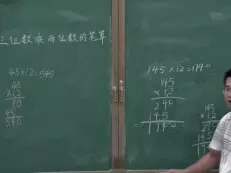 三位数乘两位数的笔算
45×12=540
45
×12
90
45
540
145×12=174
145
×12
290
145
174
145
×12